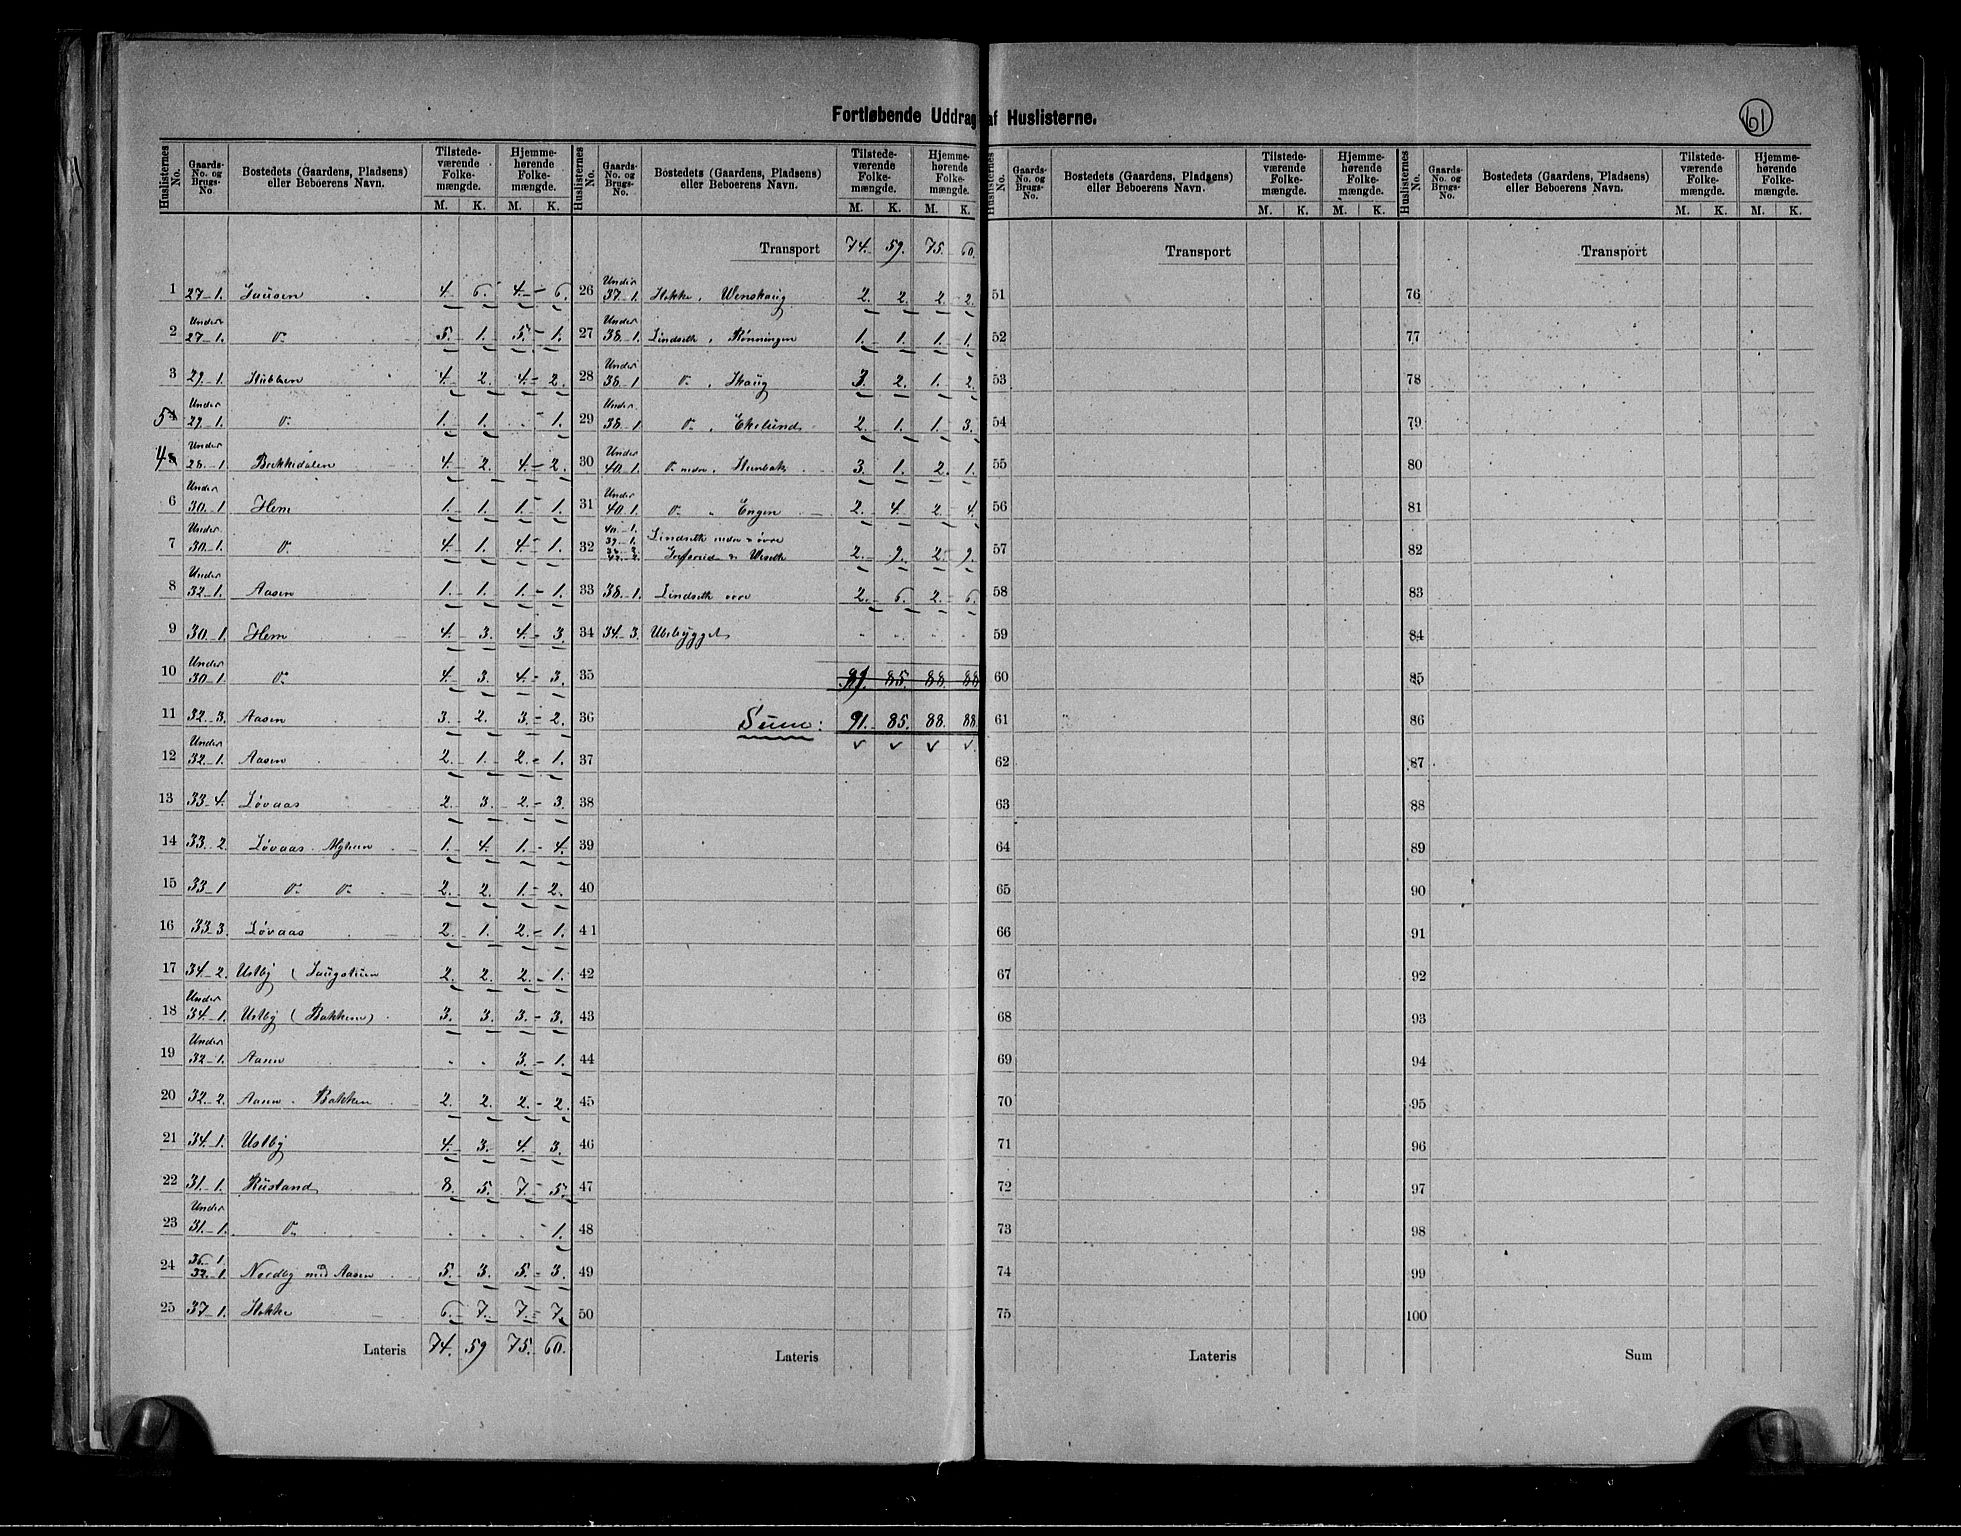 Fortløbende Uddrag af Huslisterne.
61
Huslisternes No. Gaards-No. og Brugs-No. Bostedets (Gaardens, Pladsens) eller Beboerens Navn. Tilstedeværende Folkemængde. M. K. Hjemmehørende Folkemængde. M. K.
1 27-1. 4. 6. 4. 6.
2 Under 27-1. 5. 1. 5. 1.
3 29-1. Stubben 4. 2. 4. 2.
5 Under 29-1. 1. 1. . 1.
4 Under 28-1 Bekkedalen 4. 2. 4. 2.
6 Under 30-1 Hem 1. 1. 1. 1.
7 Under 30-1. 4. 1. 4. 1.
8 Under 32-1. Aasen 1. 1. 1. 1.
9 30-1. Hem 4. 3. 4. 3.
10 Under 30-1. 4. 3. 4. 3.
11 32-3. Aasen 3. 2. 3. 2.
12 Under 32-1. Aasen 2. 1. 2. 1.
13 33-4. Løvaas 2. 3. 2. 3.
14 33-2. Løvaas 1. 4. 1. 4.
15 33-1 2. 2. 1. 2.
16 33-3 Løvaas 2. 1. 2. 1.
17 34-2. Ustby 2. 2. 2. 1.
18 Under 34-1. Ustby (Bakken) 3. 3. 3. 3.
19 Under 32-1. Aasen . . 3. 1.
20 32-2. Aasen Bakken 2. 2. 2. 2.
21 34-1. Ustby 4. 3. 4. 3.
22 31-1. Rustand 8. 5. 7. 5.
23 Under 31-1. . . . 1.
24 36-1. 32-1. Nordby med Aasen 5. 3. 5. 3.
25 37-1. Stokke 6. 7. 7. 7.
Lateris 74. 59 75. 60.
Huslisternes No. Gaards-No. og Brugs-No. Bostedets (Gaardens, Pladsens) eller Beboerens Navn. Tilstedeværende Folkemængde. M. K. Hjemmehørende Folkemængde. M. K.
Transport 74. 59. 75. 60.
26 Under 37-1. Stokke, Wenskaug 2. 2. 2. 2.
27 Under 38-1. Lindseth, Rønningen 1. 1. 1. 1.
28 Under 38-1 Skaug 3. 2. 1. 2.
29 Under 38-1 Ekelund 2. 1. 1. 3.
30 Under 40-1. nedre, Stenbæk 3. 1. 2. 1.
31 Under 40-1. Engen 2. 4. 2. 4.
32 40-1. 39-1. Lindseth nedre øvre 2. 9. 2. 9.
33 38-1. Lindseth øvre 2. 6. 2. 6.
34 34-3. Ubebygget . . . .
35 91. 85. 88. 88
36 Sum: 91. 85. 88. 88.
37
38
39
40
41
42
43
44
45
46
47
48
49
50
Lateris
Huslisternes No. Gaards-No. og Brugs-No. Bostedets (Gaardens, Pladsens) eller Beboerens Navn. Tilstedeværende Folkemængde. M. K. Hjemmehørende Folkemængde. M. K.
Transport
51
52
53
54
55
56
57
58
59
60
61
62
63
64
65
66
67
68
69
70
71
72
73
74
75
Lateris
Huslisternes No. Gaards-No. og Brugs-No. Bostedets (Gaardens, Pladsens) eller Beboerens Navn. Tilstedeværende Folkemængde. M. K. Hjemmehørende Folkemængde. M. K.
Transport
76
77
78
79
80
81
82
83
84
85
86
87
88
89
90
91
92
93
94
95
96
97
98
99
100
Sum